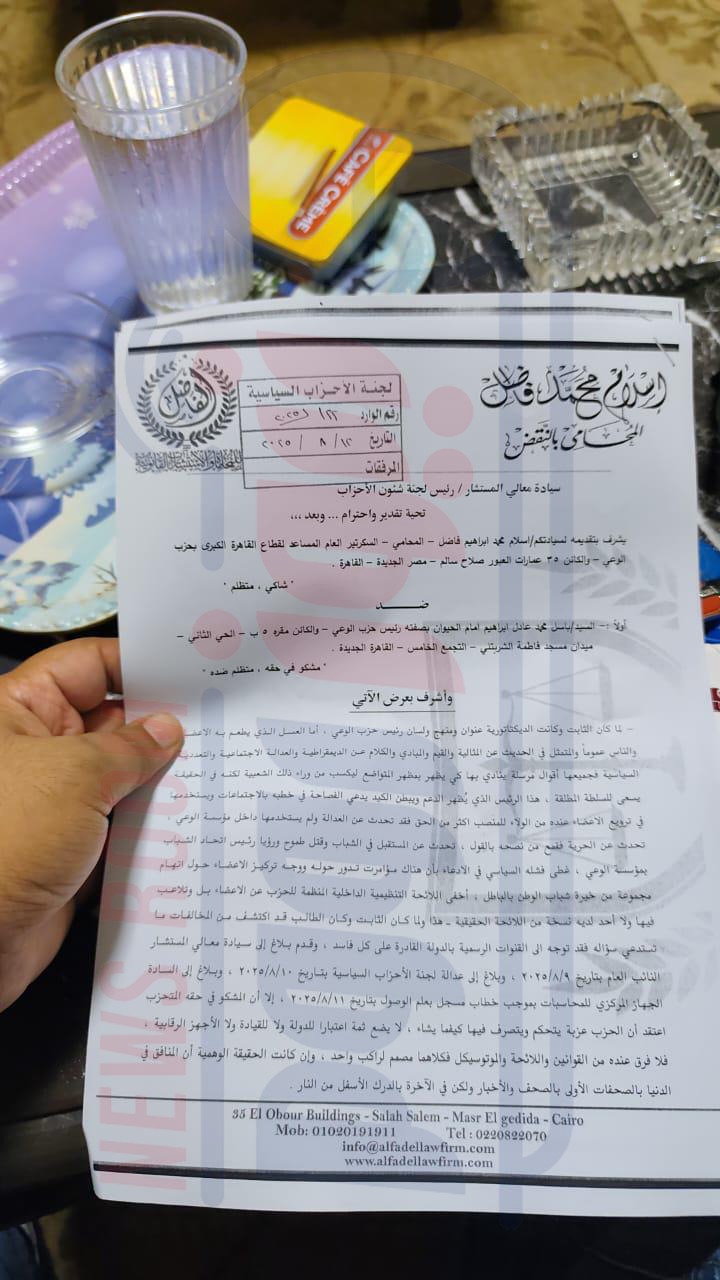 CAFÉ CRÈME
اسلام محمد فاضل
المحامى بالنقض
الفاضل
لجنة الأحزاب السياسية
رقم الوارد
التاريخ ١٢ / ٨ / ٢٠٢٥
المرفقات
سيادة معالي المستشار / رئيس لجنة شئون الأحزاب
تحية تقدير واحترام ... وبعد ،،،
يشرف بتقديمه لسيادتكم/اسلام محمد ابراهيم فاضل – المحامي – السكرتير العام المساعد لقطاع القاهرة الكبرى بحزب
الوعي – والكائن ٣٥ عمارات العبور صلاح سالم – مصر الجديدة – القاهرة .
" شاكي ، متظلم "
ضــــد
أولاً :- السيد/باسل محمد عادل ابراهيم امام الحيوان بصفته رئيس حزب الوعي – والكائن مقره ٥ ب – الحي الثاني –
ميدان مسجد فاطمة الشربتلي – التجمع الخامس – القاهرة الجديدة .
" مشكو في حقه ، متظلم ضده "
وأشرف بعرض الآتي
– لما كان الثابت وكانت الديكتاتورية عنوان ومنهج ولسان رئيس حزب الوعي ، أما العسل الذي يطعم به الاعضاء
والناس عموماً والمتمثل في الحديث عن المثالية والقيم والمبادي والكلام عن الديمقراطية والعدالة الاجتماعية والتعددية
السياسية فجميعها أقوال مرسلة ينادي بها كي يظهر بمظهر المتواضع ليكسب من وراء ذلك الشعبية لكنه في الحقيقة
يسعى للسلطة المطلقة ، هذا الرئيس الذي يُظهر الدعم ويبطن الكيد يدعي الفصاحة في خطبه بالاجتماعات ويستخدمها
في ترويع الاعضاء عنده من الولاء للمنصب اكثر من الحق فقد تحدث عن العدالة ولم يستخدمها داخل مؤسسة الوعي ،
تحدث عن الحرية فقمع من نصحه بالقول ، تحدث عن المستقبل في الشباب وقتل طموح ورؤيا رئيس اتحاد الشباب
بمؤسسة الوعي ، غطى فشله السياسي في الادعاء بأن هناك مؤامرت تدور حوله ووجه تركيز الاعضاء حول اتهام
مجموعة من خيرة شباب الوطن بالباطل ، أخفى اللائحة التنظيمية الداخلية المنظمة للحزب عن الاعضاء بل وتلاعب
فيها ولا أحد لديه نسخة من اللائحة الحقيقية . هذا ولما كان الثابت وكان الطالب قد اكتشف من المخالفات ما
تستدعي سؤاله فقد توجه الى القنوات الرسمية بالدولة القادرة على كل فاسد ، وقدم بلاغ إلى سيادة معالي المستشار
النائب العام بتاريخ ٢٠٢٥/٨/٩ ، وبلاغ إلى عدالة لجنة الأحزاب السياسية بتاريخ ٢٠٢٥/٨/١٠ ، وبلاغ إلى السادة
الجهاز المركزي للمحاسبات بموجب خطاب مسجل بعلم الوصول بتاريخ ٢٠٢٥/٨/١١ ، إلا أن المشكو في حقه المتحزب
اعتقد أن الحزب عزبة يتحكم ويتصرف فيها كيفما يشاء ، لا يضع ثمة اعتبارا للدولة ولا للقيادة ولا الأجهز الرقابية ،
فلا فرق عنده من القوانين واللائحة والموتوسيكل فكلاهما مصمم لراكب واحد ، وإن كانت الحقيقة الوهمية أن المنافق في
الدنيا بالصحفات الأولى بالصحف والأخبار ولكن في الآخرة بالدرك الأسفل من النار .
35 El Obour Buildings - Salah Salem - Masr El gedida - Cairo
Mob: 01020191911 Tel : 0220822070
info@alfadellawfirm.com
www.alfadellawfirm.com
NEWS ROOM